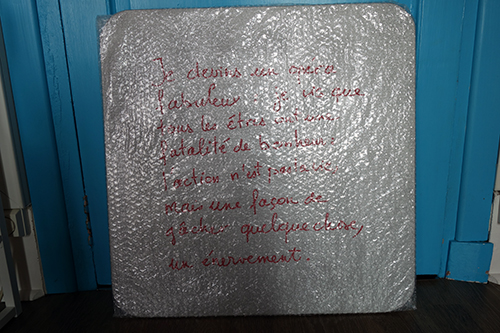 Je devins un opéra
fabuleux : je vis que
tous les êtres ont une
fatalité de bonheur :
l'action n'est pas la vie,
mais une façon de
gâcher quelque chose,
un énervement.